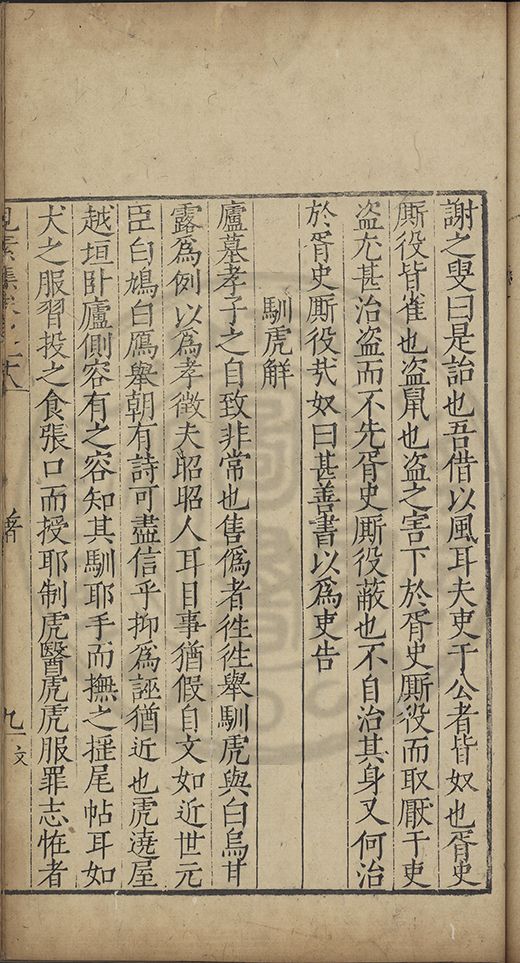 謝之叟曰是詒也吾借以風耳夫吏于公者皆奴也胥史
厮役皆雀也盗鼠也盗之害下於胥史厮役而取厭于吏
盗尤甚治盗而不先胥史厮役蔽也不自治其身又何治
於胥史厮役㢤奴曰甚善書以爲吏告
馴虎解
廬墓孝子之自致非常也售僞者徃徃舉馴虎與白烏甘
露爲例以爲孝徵夫昭昭人耳目事猶假自文如近世元
臣白鳩白鴈舉朝有詩可盡信乎抑爲誣猶近也虎遶屋
越垣卧廬側容有之容知其馴耶手而撫之搖尾帖耳如
犬之服習投之食張口而授耶制虎醫虎虎服罪志恠者
見素集
九
文